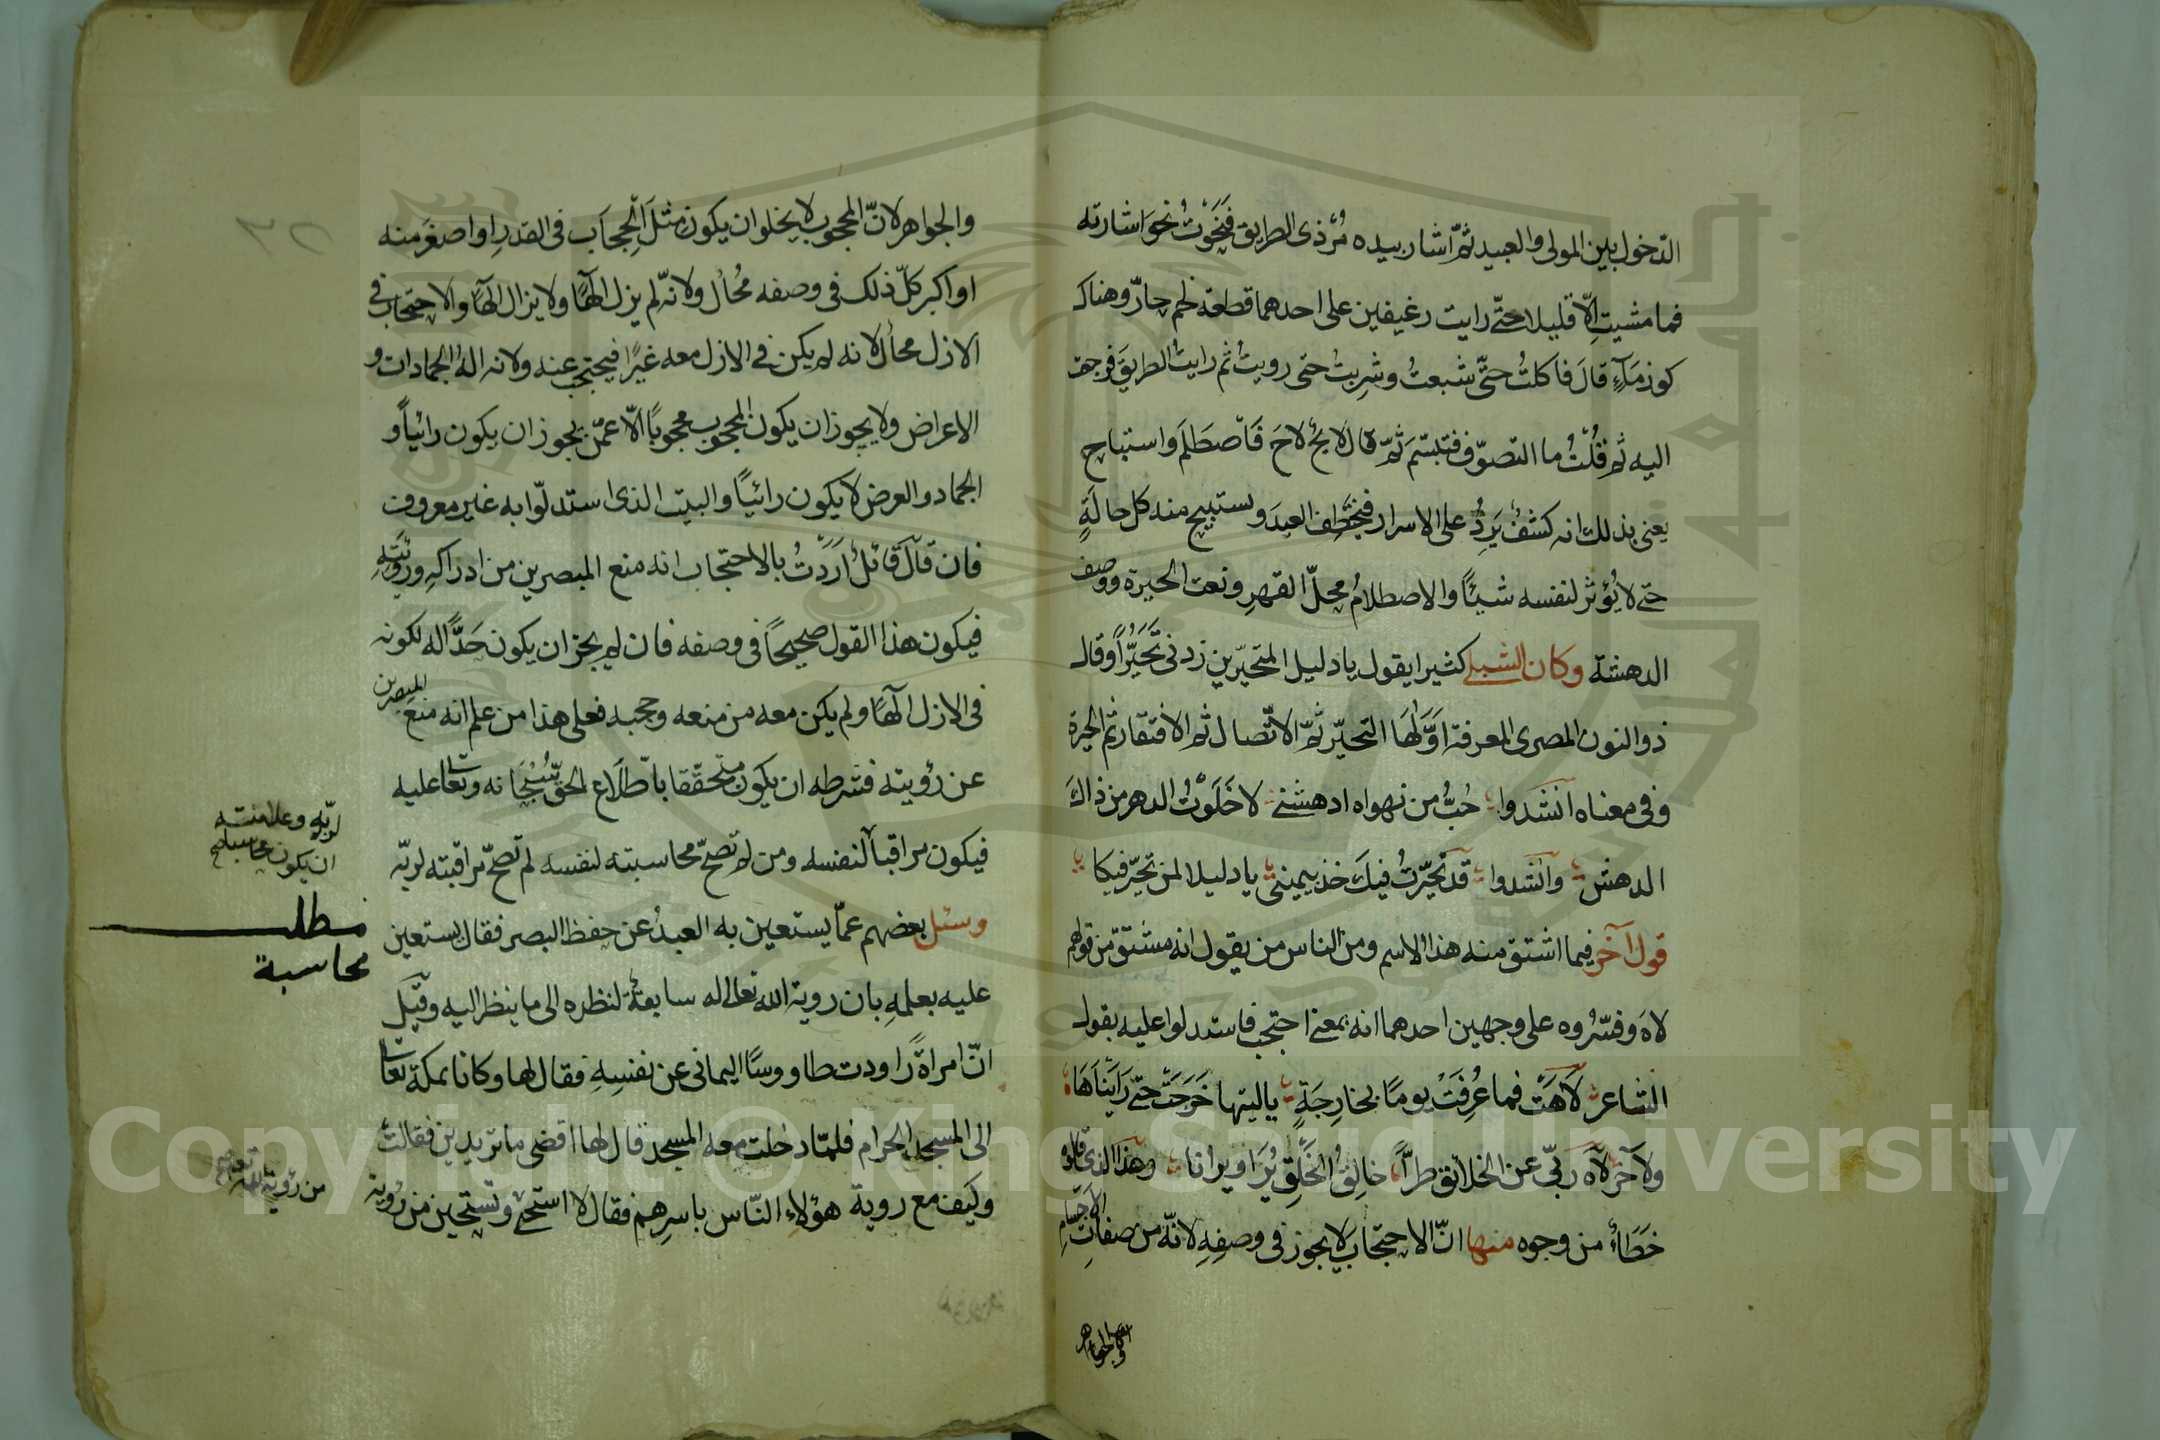 الدخول بين المولى والعبيد ثمّ اشار بيده مُرْ ذى الطريق فَنَحَوْتُ نحوَ اشارته
فما مشيت الّا قليلا حتّى رايت رغيفين على احدهما قطعة لحم حارّ وهناك
كوز مَآءٍ قالَ فاكلتُ حتّى شبعتُ وشربت حتى رويتُ ثم رايتُ الطريقَ فرجعت
اليه ثم فقُلْتُ ما التصوّف فتبسّمَ ثمّ قال لايحٌ لاحَ فَاصْطَلَمَ واستباح
يعنى بذلك انه كشفٌ يَرِدُ على الاسرار فيخطف العبدَ ويستبيح منه كل حالَةٍ
حتى لا يُؤثر لنفسه شيئًا والاصطلامُ محلّ القهر ونعت الحيرة ووصف
الدهشة وكان الشبلى كثيرا يقول يا دليل المتحيّرين زدنى تَحَيُّرًا وقال
ذو النون المصرى المعرفة اوّلُهَا التحيّر ثمّ الاتّصال ثم الافتقار ثم الحيرة
وفى معناه انشدوا حُبُّ من نهواه ادهشنى لا خَلَوْتُ الدهر من ذاكَ
الدهش وانشدوا قد تحيّرتُ فيكَ خذ بيمينى يا دليلا لمن تحيّر فيكا
قول آخر فيما اشتق منه هذا الاسم ومن الناس من يقول انه مشتقّ من قولهم
لاهَ وفسّرُوه على وجهين احدهما انه بمعنى احتجب فاستدلوا عليه بقول
الشاعر لَاهَتْ فما عُرِفَتْ يومًا بخارِجَةٍ ياليتها خَرَجَتْ حتّى رَاَيْنَاهَا
ولآخر لاه رَبّى عن الخلائق طرًّا خالِقُ الخَلْقِ يُرَا ويرانا وهذا الذى قالوه
خَطَأٌ من وجوه منها انّ الاحتجاب لا يجوز فى وصفِهِ لانّه من صفات الاجسام
والجواهر
والجواهر لانّ المحجوب لا يخلوا ان يكون مثلَ الحِجَاب فى القدر او اصغر منه
او اكبر كلّ ذلك فى وصفه مُحال ولانّه لم يزل الهًا ولا يزال الهًا والاحتجاب فى
الازل محالٌ لانه لم يكن فى الازل معه غيرًا فيحتجب عنه ولانه الهُ الجمادات و
الاعراض ولا يجوز ان يكون المحجوب محجوبًا الّا عمّن يجوز ان يكون رائيًا و
الجماد والعرض لا يكون رائيًا والبيت الذى استدلّوا به غير معروف
فان قالَ قائلٌ اَرَدْتُ بالاحتجاب انه منع المبصرين من ادراكه ورؤيَتِهِ
فيكون هذا القول صحيحًا فى وصفه فان لم يجز ان يكون حَدًّا له لكونه
فى الازل الهًا ولم يكن معه من منعه وحجبه فعلى هذا من علم انه منع المبصرين
عن رؤيته فشرطه ان يكون متحقّقا باطّلاع الحقّ سُبْحَانه وتعالى عليه
فيكون مراقبًا لنفسه ومن لم تصحّ محاسبته لنفسه لم تصحّ مراقبته لربّه
وسئل بعضهم عمّا يستعين به العبدُ عن حفظ البصر فقال يستعين
عليه بعلمِهِ بان روية الله تعالى له سابقةٌ لنظره الى ما ينظر اليه وقيل
انّ امراةً راودت طاووسًا اليمانى عن نفسِهِ فقال لها وكانا بمكة تعالى
الى المسجد الحرام فلمّا دخلت معه المسجد قال لها اقضى ما تريدين فقالت
وكيف مع روية هؤلاء النّاس باسرِهم فقال لا استحى وتستحين من رُوية
لربّه وعلامته
ان يكون محاسبا
مطلب
محاسبة
من رؤية الله تعالى